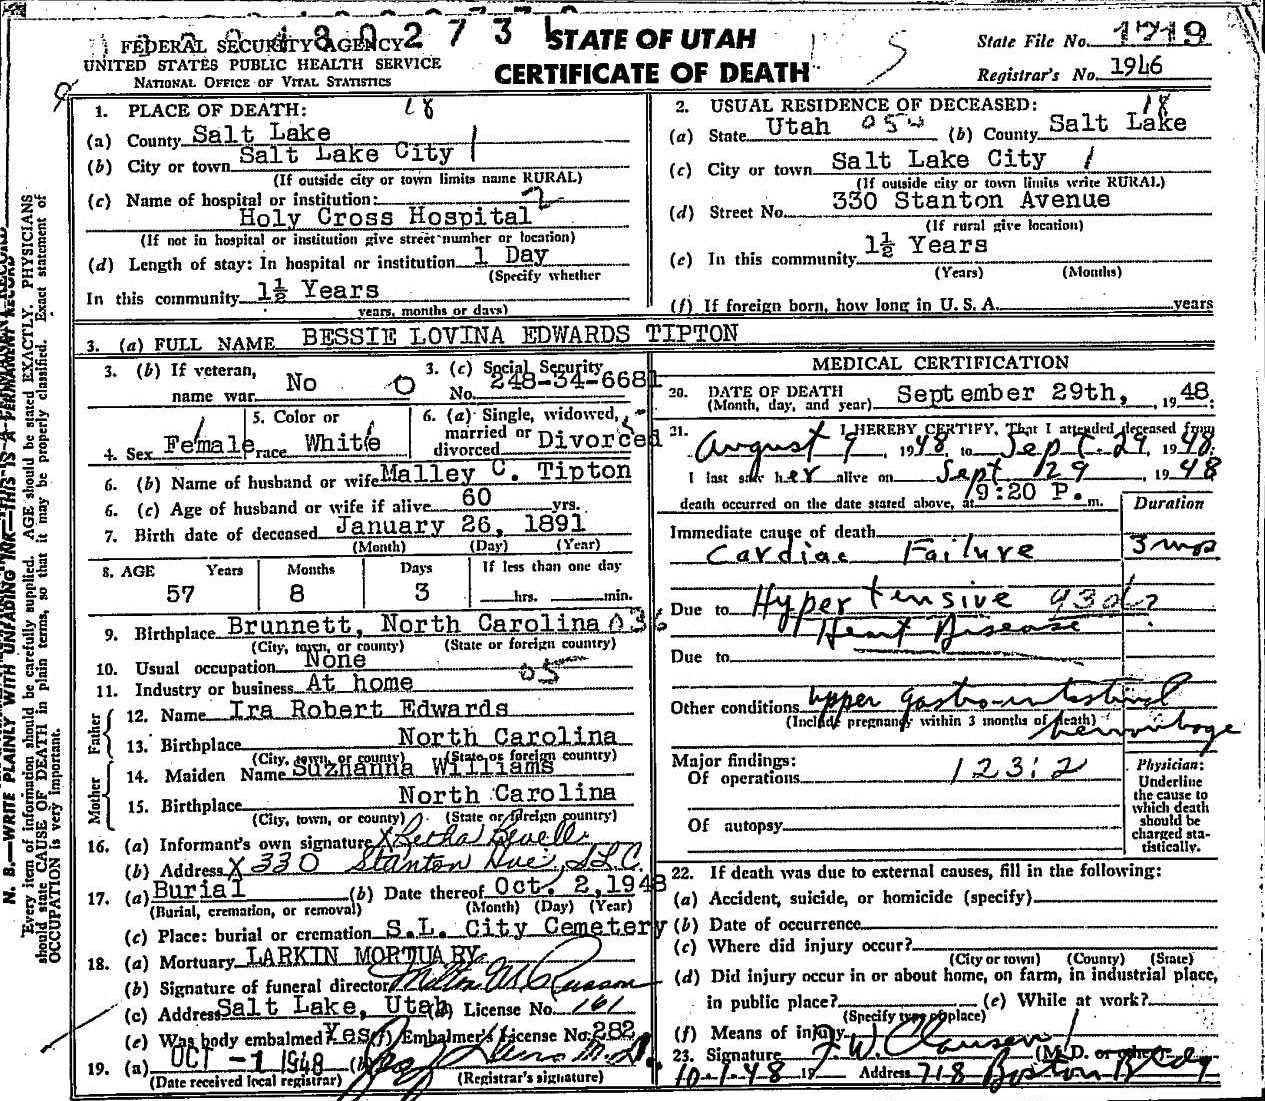 FEDERAL SECURITY AGENCY
UNITED STATES PUBLIC HEALTH SERVICE
NATIONAL OFFICE OF VITAL STATISTICS
STATE OF UTAH
CERTIFICATE OF DEATH
State File No. 1719
Registrar's No. 1946
1. PLACE OF DEATH: 18
(a) County Salt Lake
(b) City or town Salt Lake City 1
(If outside city or town limits name RURAL)
(c) Name of hospital or institution: 2
Holy Cross Hospital
(If not in hospital or institution give street number or location)
(d) Length of stay: In hospital or institution 1 Day
(Specify whether
In this community 1½ Years
years, months or days)
2. USUAL RESIDENCE OF DECEASED: 18
(a) State Utah 050 (b) County Salt Lake
(c) City or town Salt Lake City 1
(If outside city or town limits write RURAL)
(d) Street No. 330 Stanton Avenue
(If rural give location)
(e) In this community 1½ Years
(Years) (Months)
(f) If foreign born, how long in U. S. A. years
3. (a) FULL NAME BESSIE LOVINA EDWARDS TIPTON
3. (b) If veteran, name war No 0
3. (c) Social Security No. 248-34-6681
4. Sex Female
5. Color or race White
6. (a) Single, widowed, married or divorced Divorced
6. (b) Name of husband or wife Malley C. Tipton
6. (c) Age of husband or wife if alive 60 yrs.
7. Birth date of deceased January 26, 1891
(Month) (Day) (Year)
8. AGE Years Months Days If less than one day
57 8 3 hrs. min.
9. Birthplace Brunnett, North Carolina 036
(City, town, or county) (State or foreign country)
10. Usual occupation None
11. Industry or business At home 05
Father
12. Name Ira Robert Edwards
13. Birthplace North Carolina
(City, town, or county) (State or foreign country)
Mother
14. Maiden Name Suzhanna Williams
15. Birthplace North Carolina
(City, town, or county) (State or foreign country)
16. (a) Informant's own signature X Retha
(b) Address X 330 Stanton Ave, S.L.C.
17. (a) Burial (b) Date thereof Oct. 2, 1948
(Burial, cremation, or removal) (Month) (Day) (Year)
(c) Place: burial or cremation S.L. City Cemetery
18. (a) Mortuary LARKIN MORTUARY
(b) Signature of funeral director
(c) Address Salt Lake, Utah (d) License No. 161
(e) Was body embalmed Yes (f) Embalmer's License No. 282
19. (a) OCT -1 1948 (b)
(Date received local registrar) (Registrar's signature)
MEDICAL CERTIFICATION
20. DATE OF DEATH
(Month, day, and year) September 29th, 1948.
21. I HEREBY CERTIFY, That I attended deceased from
August 9 1948, to Sept. 29, 1948.
I last saw her alive on Sept 29, 1948
death occurred on the date stated above, at 9:20 P. m.
Duration
Immediate cause of death
Cardiac Failure 3 mos
Due to Hypertensive 93d ?
Heart Disease
Due to
Other conditions upper gastro-intestinal
(Include pregnancy within 3 months of death) hemorrhage
Major findings:
Of operations 123:2
Of autopsy
Physician:
Underline
the cause to
which death
should be
charged sta-
tistically.
22. If death was due to external causes, fill in the following:
(a) Accident, suicide, or homicide (specify)
(b) Date of occurrence
(c) Where did injury occur?
(City or town) (County) (State)
(d) Did injury occur in or about home, on farm, in industrial place,
in public place? (e) While at work?
(Specify type of place)
(f) Means of injury
23. Signature J. W. Clausen (M.D. or other)
10-1-48 19 Address 718 Boston Bldg
N. B.—WRITE PLAINLY WITH UNFADING INK—THIS IS A PERMANENT RECORD
Every item of information should be carefully supplied. AGE should be stated EXACTLY. PHYSICIANS
should state CAUSE OF DEATH in plain terms, so that it may be properly classified. Exact statement of
OCCUPATION is very important.